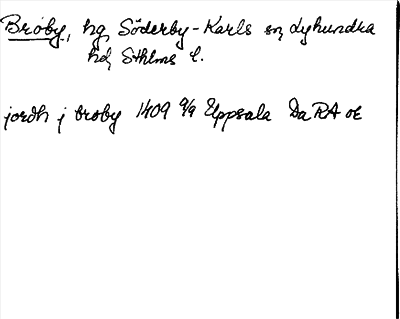 Broby, hg Söderby-Karls sn Lyhundra
hd, Sthlms l.
jordh j broby 1409 9/9 Uppsala Da RA or